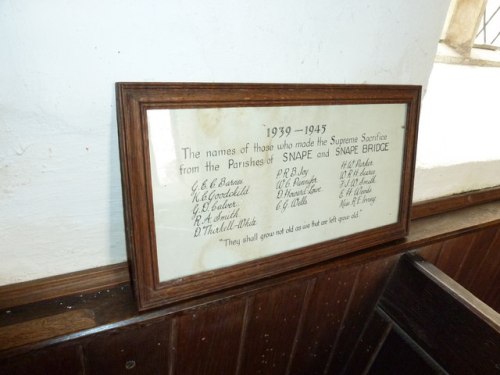 1939 — 1945
The names of those who made the Supreme Sacrifice
from the Parishes of SNAPE and SNAPE BRIDGE
G. E. C. Barnes
K. C. Goodchild
G. D. Culver
R. A. Smith
D. Thirkell-White
P. R. B. Joy
D. Howard Lowe
C. G. Wells
H. W. Parker
F. J. W. Smith
E. H. Woods
"They shall grow not old as we that are left grow old."